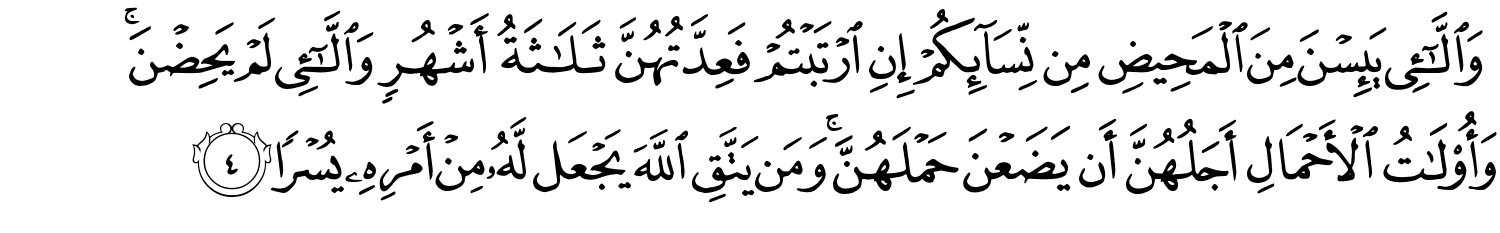 وَٱلَّٰٓـِٔي يَئِسۡنَ مِنَ ٱلۡمَحِيضِ مِن نِّسَآئِكُمۡ إِنِ ٱرۡتَبۡتُمۡ فَعِدَّتُهُنَّ ثَلَٰثَةُ أَشۡهُرٖ وَٱلَّٰٓـِٔي لَمۡ يَحِضۡنَۚ
وَأُوْلَٰتُ ٱلۡأَحۡمَالِ أَجَلُهُنَّ أَن يَضَعۡنَ حَمۡلَهُنَّۚ وَمَن يَتَّقِ ٱللَّهَ يَجۡعَل لَّهُۥ مِنۡ أَمۡرِهِۦ يُسۡرٗا ٤